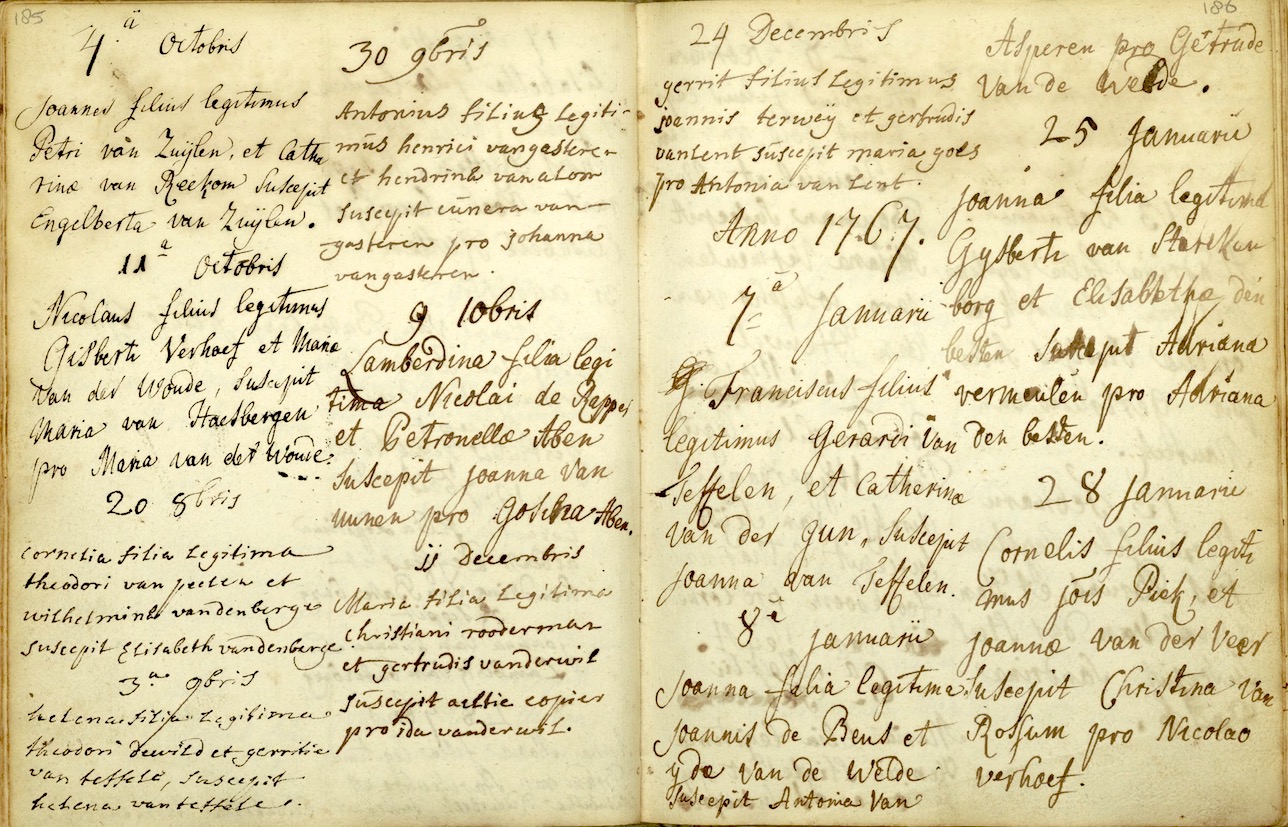 185
4.ä Octobris
Joannes filius legitimus
Petri van Zuÿlen, et Catha
rinæ van Reekom Suscepit
Engelberta van Zuÿlen.
11a Octobris
Nicolaus filius legitimus
Gisberti Verhoef et Mariæ
Van der Woude, Suscepit
Maria van Haesbergen
pro Maria van der Woude.
20 8bris
cornelia filia Legitima
theodori van peelen et
wilhelmina vandenberge
suscepit Elisabeth vandenberge
3a 9bris
helena filia Legitima
theodori Dewild et gerritie
van teffele, suscepit
helena van teffele.
30 9bris
Antonius filius Legiti-
mus henrici vangasteren
et hendrina vanalom
suscepit cunera van-
gasteren pro johanna
vangasteren.
9 10bris
Lamberdina filia legi
tima Nicolai de Rappei
et Petronellæ Aben
Suscepit Joanna Van
Uunen pro Goselia Aben.
ij Decembris
Maria filia Legitima
Christiani rooderman
et gertrudis vanderwil
suscepit aeltie copier
pro ida vanderwil.
186
24 Decembris
gerrit filius Legitimus
joannis terweÿ et gertrudis
vanLent suscepit maria goes
pro Antonia van Lent.
Anno 1767.
7ä Januarii
Franciscus filius
legitimus Gerardi Van
Teffelen, et Catherinæ
Van der Gun, Suscepit
Joanna van Teffelen.
8ä Januarii
Joanna filia legitima
Joannis de Beus et
ydæ Van de Welde
Suscepit Antonia Van
Asperen pro Getrude
Van de Welde.
25 Januarii
Joanna filia legitima
Gysberti van Sterken
borg et Elisabethæ den
besten Suscepit Adriana
vermeulen pro Adriana
den besten.
28 Januarii
Cornelis filius legiti
mus jois Piek, et
Joannæ van der Veer
Suscepit Christina Van
Rossum pro Nicolao
verhoef.